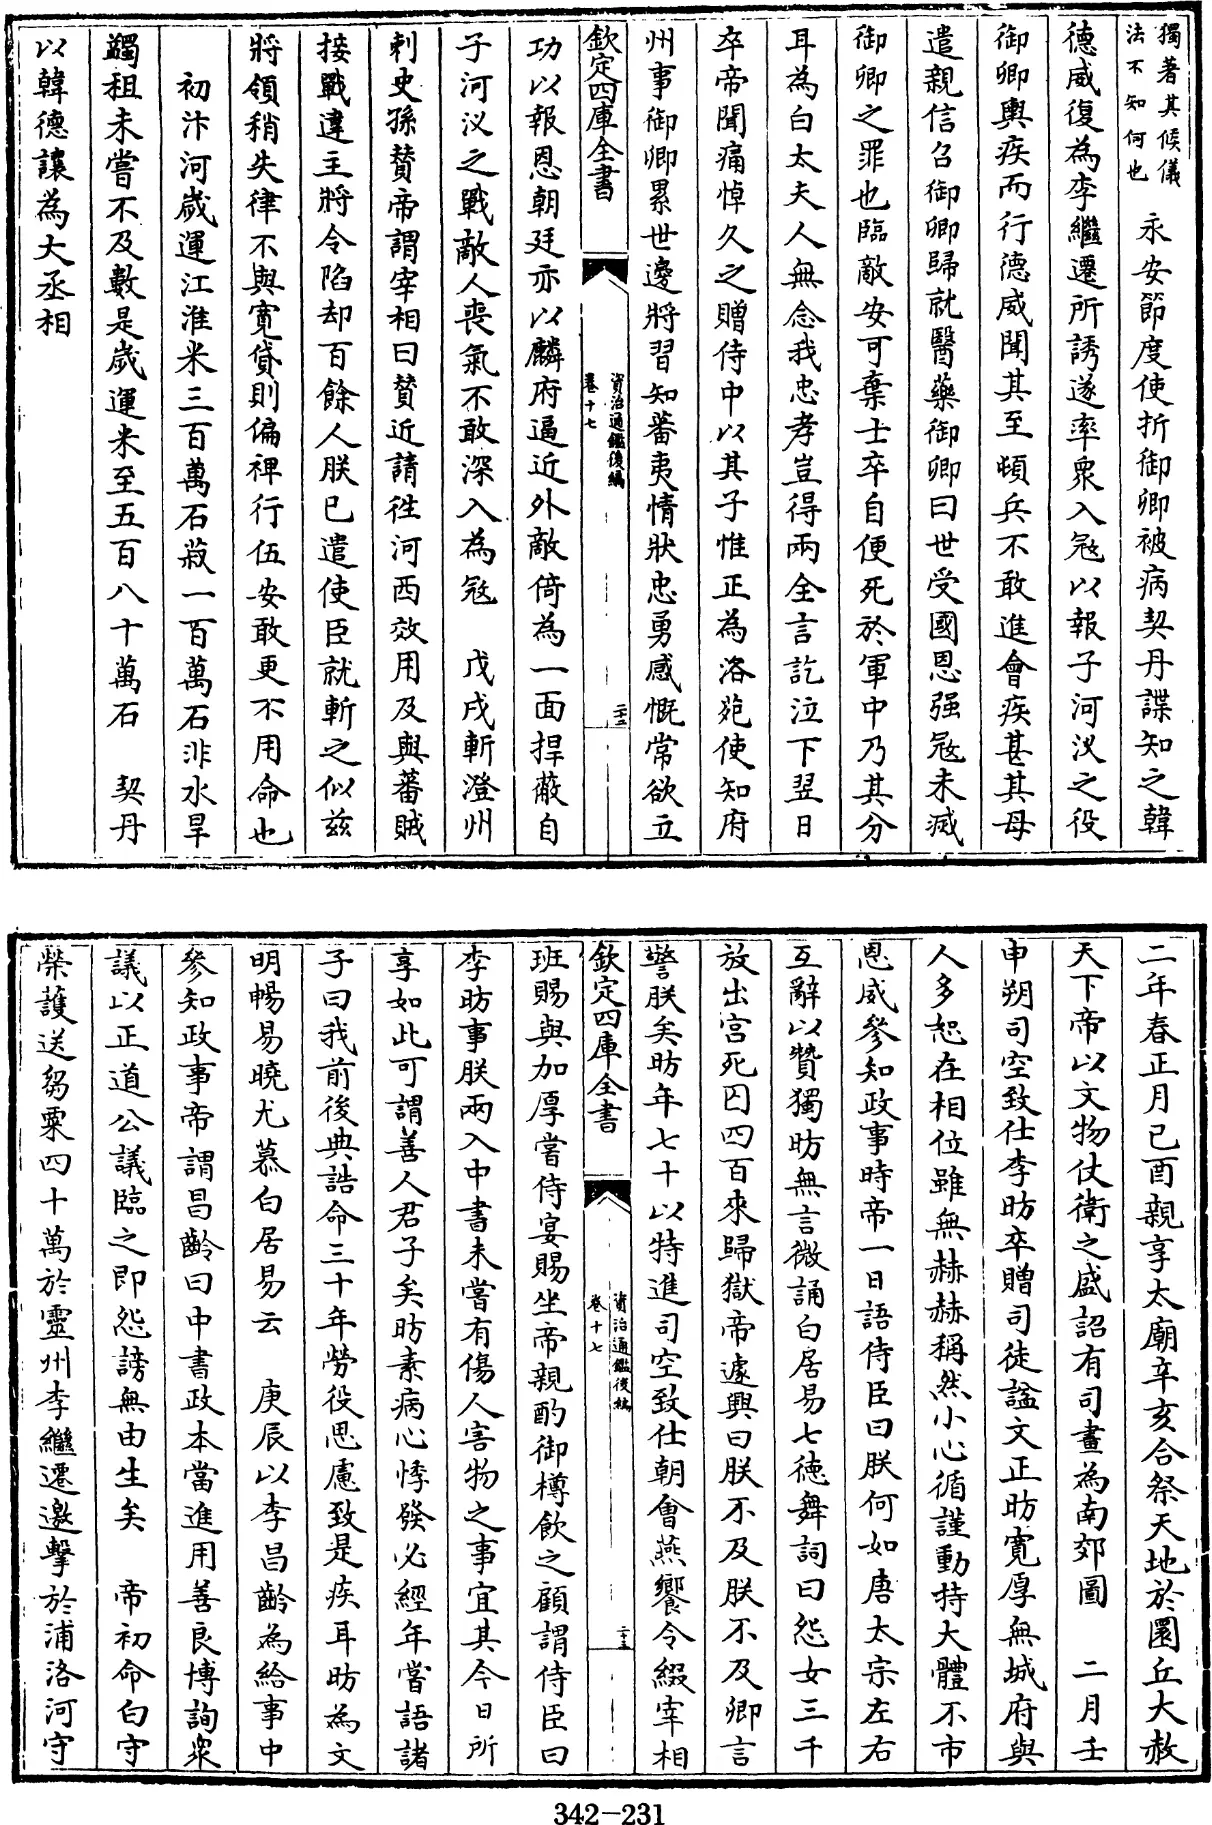 獨著其候儀
法不知何也
永安節度使折御卿被病契丹諜知之韓
德威復為李繼遷所誘遂率衆入冦以報子河汊之役
御卿輿疾而行德威聞其至頓兵不敢進會疾甚其母
遣親信召御卿歸就醫藥御卿曰世受國恩强冦未滅
御卿之罪也臨敵安可棄士卒自便死於軍中乃其分
耳為白太夫人無念我忠孝豈得兩全言訖泣下翌日
卒帝聞痛悼久之贈侍中以其子惟正為洛苑使知府
州事御卿累世邊將習知蕃夷情狀忠勇感慨常欲立
欽定四庫全書
資治通鑑後編
卷十七
二十二
功以報恩朝廷亦以麟府逼近外敵倚為一面捍蔽自
子河汊之戰敵人喪氣不敢深入為冦　戊戌斬澄州
刺史孫贊帝謂宰相曰贊近請徃河西效用及與蕃賊
接戰違主將令陷却百餘人朕已遣使臣就斬之似兹
將領稍失律不與寛貸則偏裨行伍安敢更不用命也
初汴河歲運江淮米三百萬石菽一百萬石非水旱
蠲租未嘗不及數是歲運米至五百八十萬石　契丹
以韓德讓為大丞相
二年春正月己酉親享太廟辛亥合祭天地於圜丘大赦
天下帝以文物仗衛之盛詔有司畫為南郊圖　二月壬
申朔司空致仕李昉卒贈司徒諡文正昉寛厚無城府與
人多恕在相位雖無赫赫稱然小心循謹動持大體不市
恩威參知政事時帝一日語侍臣曰朕何如唐太宗左右
互辭以贊獨昉無言微誦白居易七德舞詞曰怨女三千
放出宮死囚四百來歸獄帝遽興曰朕不及朕不及卿言
警朕矣昉年七十以特進司空致仕朝會燕饗令綴宰相
欽定四庫全書
資治通鑑後編
卷十七
二十三
班賜與加厚嘗侍宴賜坐帝親酌御樽飲之顧謂侍臣曰
李昉事朕兩入中書未嘗有傷人害物之事宜其今日所
享如此可謂善人君子矣昉素病心悸發必經年嘗語諸
子曰我前後典誥命三十年勞役思慮致是疾耳昉為文
明暢易曉尤慕白居易云　庚辰以李昌齡為給事中
參知政事帝謂昌齡曰中書政本當進用善良博詢衆
議以正道公議臨之即怨謗無由生矣　帝初命白守
榮護送芻粟四十萬於靈州李繼遷邀擊於浦洛河守
342-231